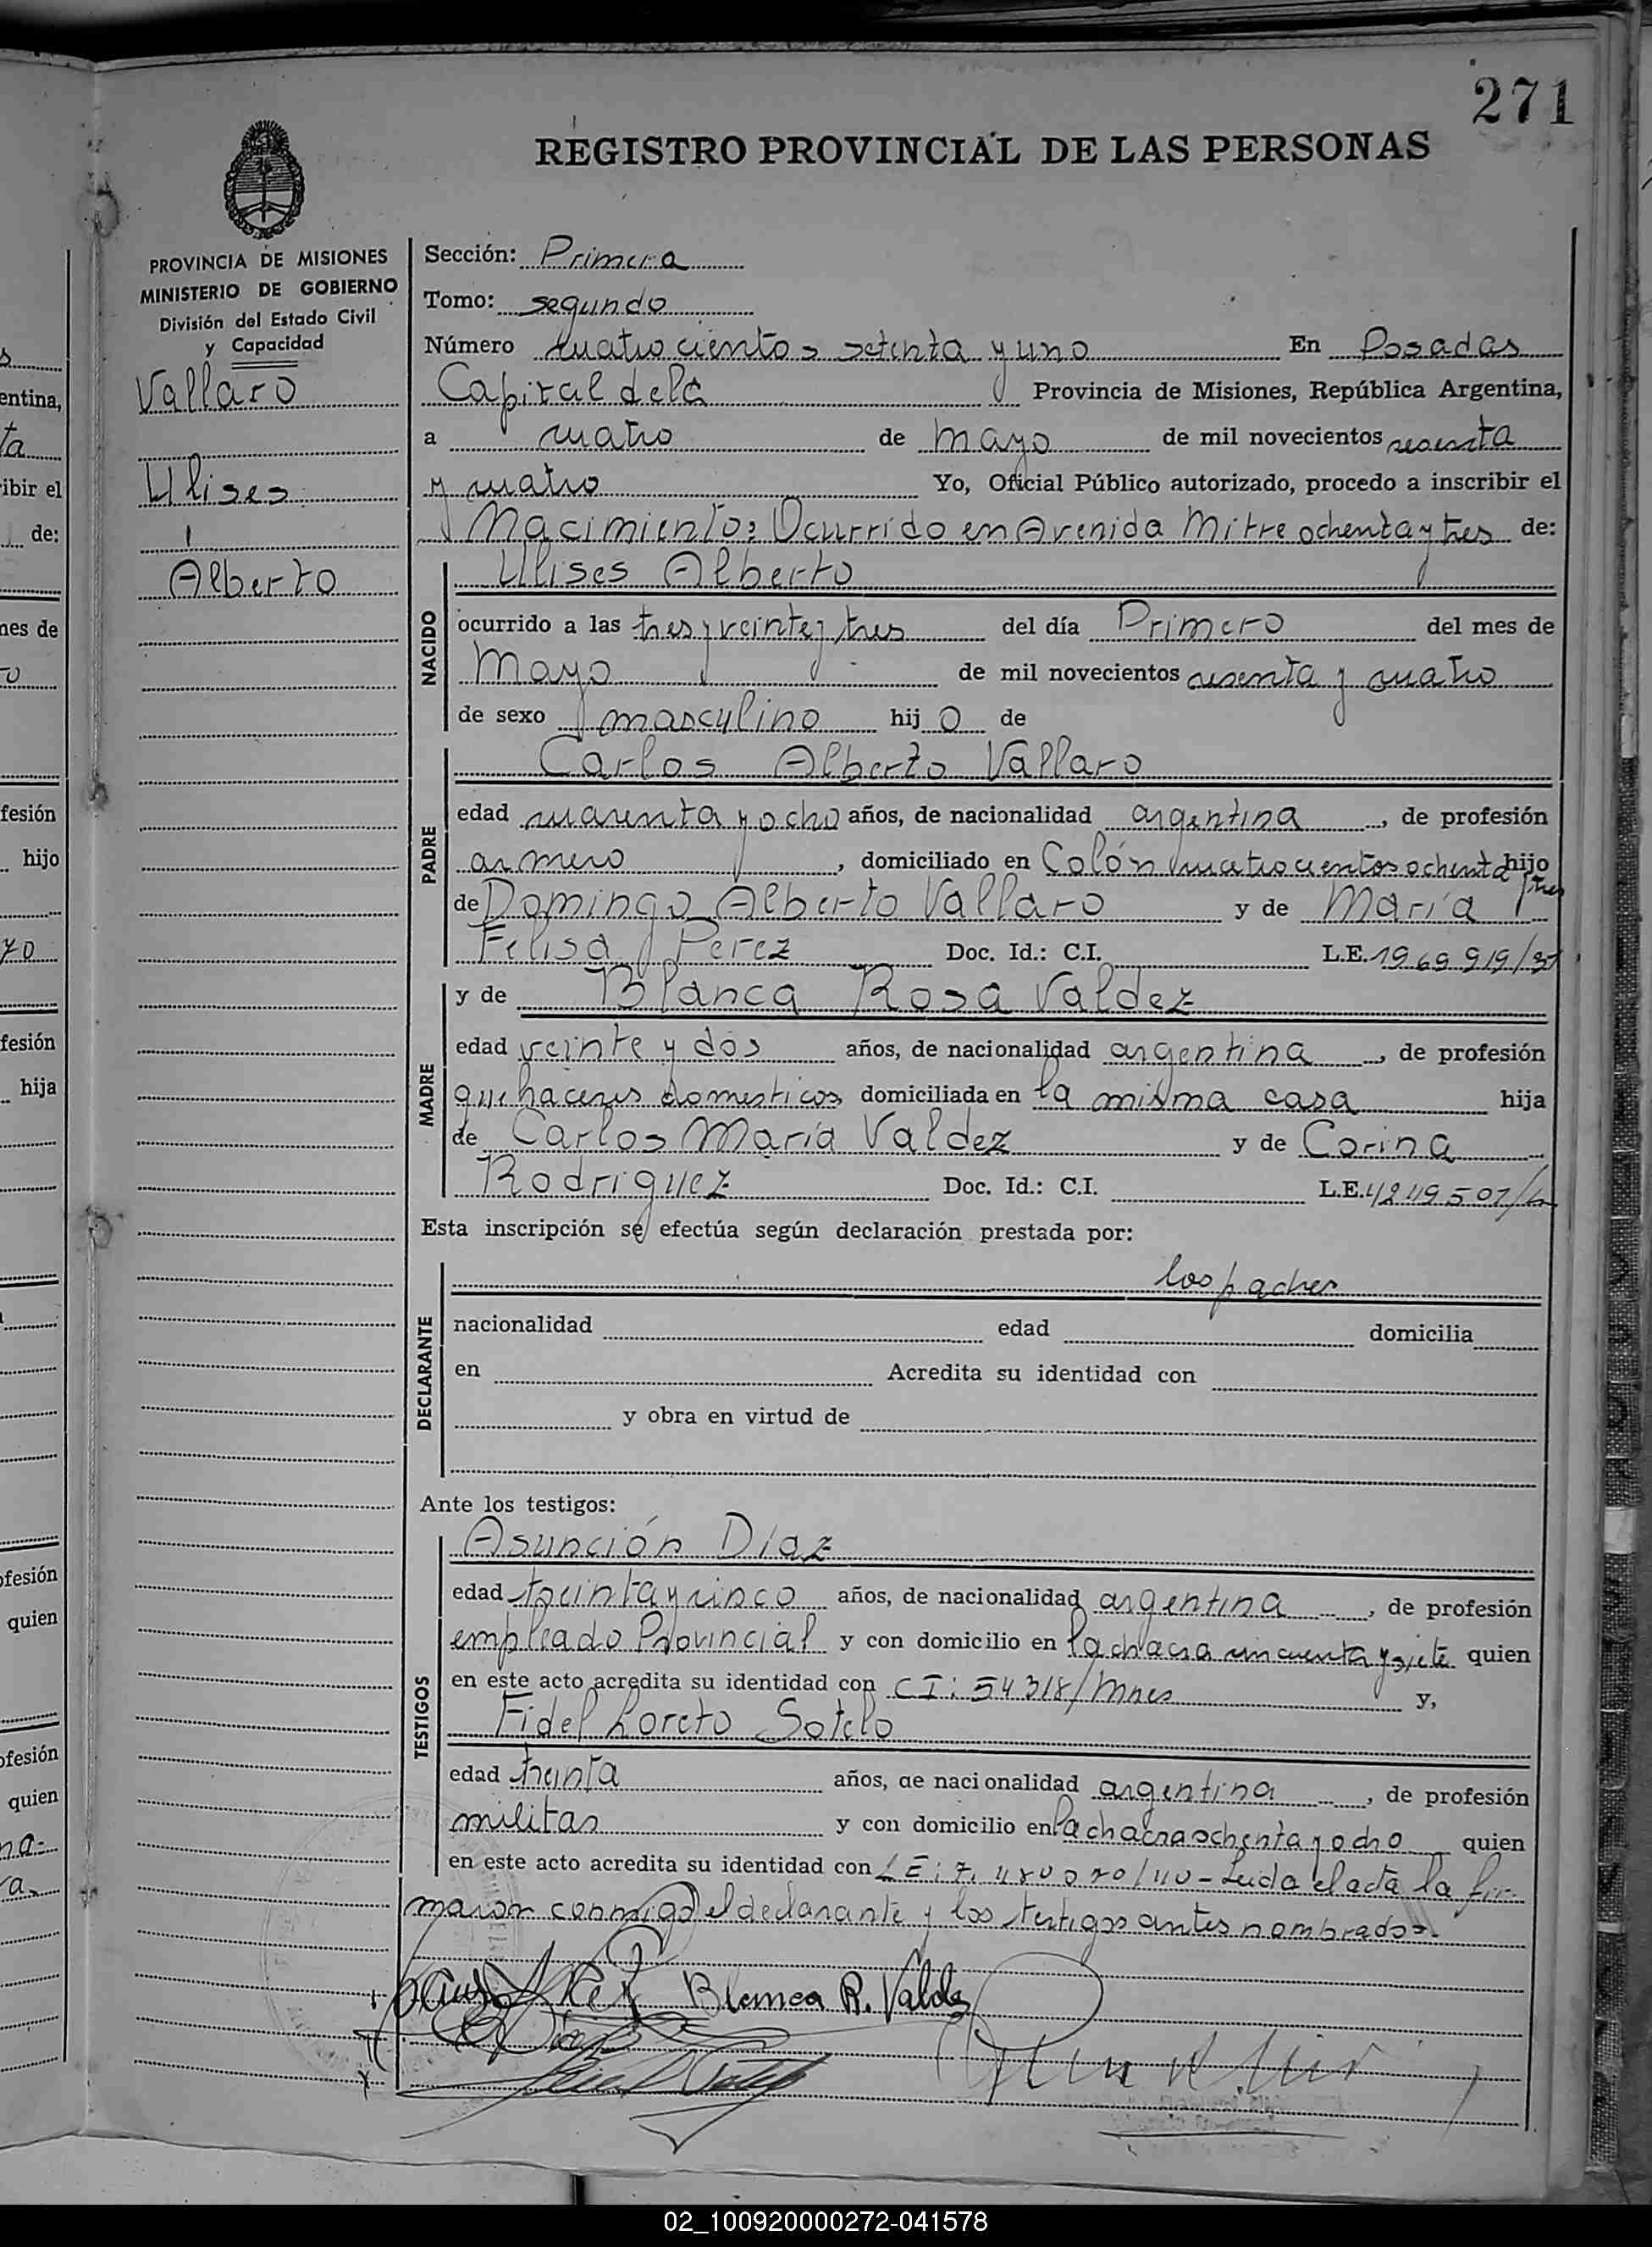 271
REGISTRO PROVINCIAL DE LAS PERSONAS
PROVINCIA DE MISIONES
MINISTERIO DE GOBIERNO
División del Estado Civil
y Capacidad
Vallaro
Ulises
Alberto
Sección: Primera
Tomo: segundo
Número cuatrocientos setenta y uno En Posadas
Capital dela Provincia de Misiones, República Argentina,
a cuatro de mayo de mil novecientos sesenta
y cuatro Yo, Oficial Público autorizado, procedo a inscribir el
Nacimiento: Ocurrido en Avenida Mitre ochenta y tres de:
NACIDO
Ulises Alberto
ocurrido a las tres y veinte y tres del día Primero del mes de
Mayo de mil novecientos sesenta y cuatro
de sexo masculino hijo de
PADRE
Carlos Alberto Vallaro
edad cuarenta y ocho años, de nacionalidad argentina, de profesión
armero, domiciliado en Colón cuatrocientos ochenta hijo
y tres
de Domingo Alberto Vallaro y de María
Felisa Perez Doc. Id.: C.I. L.E. 1969919/31
MADRE
y de Blanca Rosa Valdez
edad veinte y dos años, de nacionalidad argentina, de profesión
quehaceres domesticos domiciliada en la misma casa hija
de Carlos María Valdez y de Corina
Rodriguez Doc. Id.: C.I. L.E. 4249507/
Esta inscripción se efectúa según declaración prestada por:
DECLARANTE
los padres
nacionalidad edad domicilia
en Acredita su identidad con
y obra en virtud de
Ante los testigos:
TESTIGOS
Asunción Díaz
edad treinta y cinco años, de nacionalidad argentina, de profesión
empleado Provincial y con domicilio en la chacra cincuenta y siete quien
en este acto acredita su identidad con CI: 54318/Mnes y,
Fidel Loreto Sotelo
edad treinta años, de nacionalidad argentina, de profesión
militar y con domicilio en la chacra ochenta y ocho quien
en este acto acredita su identidad con LE: 7.480070/40 - Leida el acta la fir-
maron conmigo el declarante y los testigos antes nombrados.
Blanca R. Valdez
02_100920000272-041578